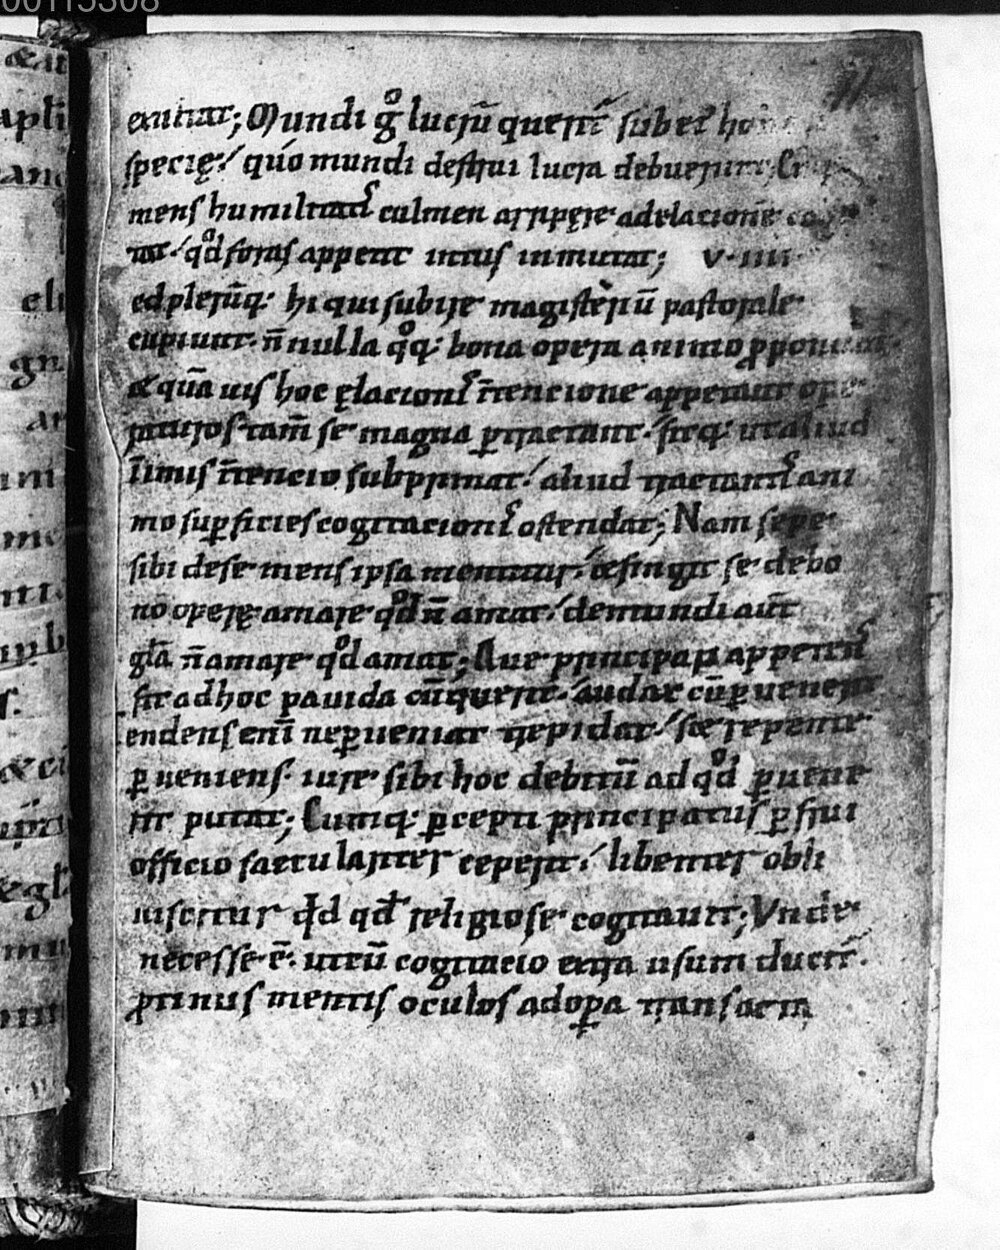 00115308
exuitat; Mundi g̊ lucrũ querit̃ sub ei᷒
specię! quo mundi destrui lucra debuerunt;
mens humilitatis culmen arripere adelacionẽ
tat! qd̊ foras appetit intus inmutat; v·iiii·
ed plerũq; hi qui subire magisteriũ pastorale
cupiunt. ñ nulla q̊q; bona opera animo ꝓponunt.
& quãuis hoc ęlacionis ĩtencione appetant ope
raturos tam̃ se magna ꝑtractant. fitq; ut aliud
ĩ imis ĩtencio subprimat! aliud tractantis ani
mo suꝑficies cogitacionis ostendat; Nam sepe
sibi de se mens ipsa mentitur! & fingit se de bo
no opere amare qd̊ ñ amat! de mundi aut̃
gl̃a ñ amare qd̊ amat; Que principari appetens
fit ad hoc pauida cũ querit. audax cũ ꝑuenerit
endens enĩ ne ꝑueniat trepidat! s& repente
ꝑueniens. iure sibi hoc debitũ ad qd̊ ꝑuene
rit putat; Cumq; ꝑcepti principatus ꝑfrui
officio saeculariter ceperit! libenter obli
uiscitur qd̃ qd̃ religiose cogitauit; Unde
necesse·ẽ· ut cũ cogitacio extra usum ducit̃.
ꝓtinus mentis oculos ad oꝑa transacta